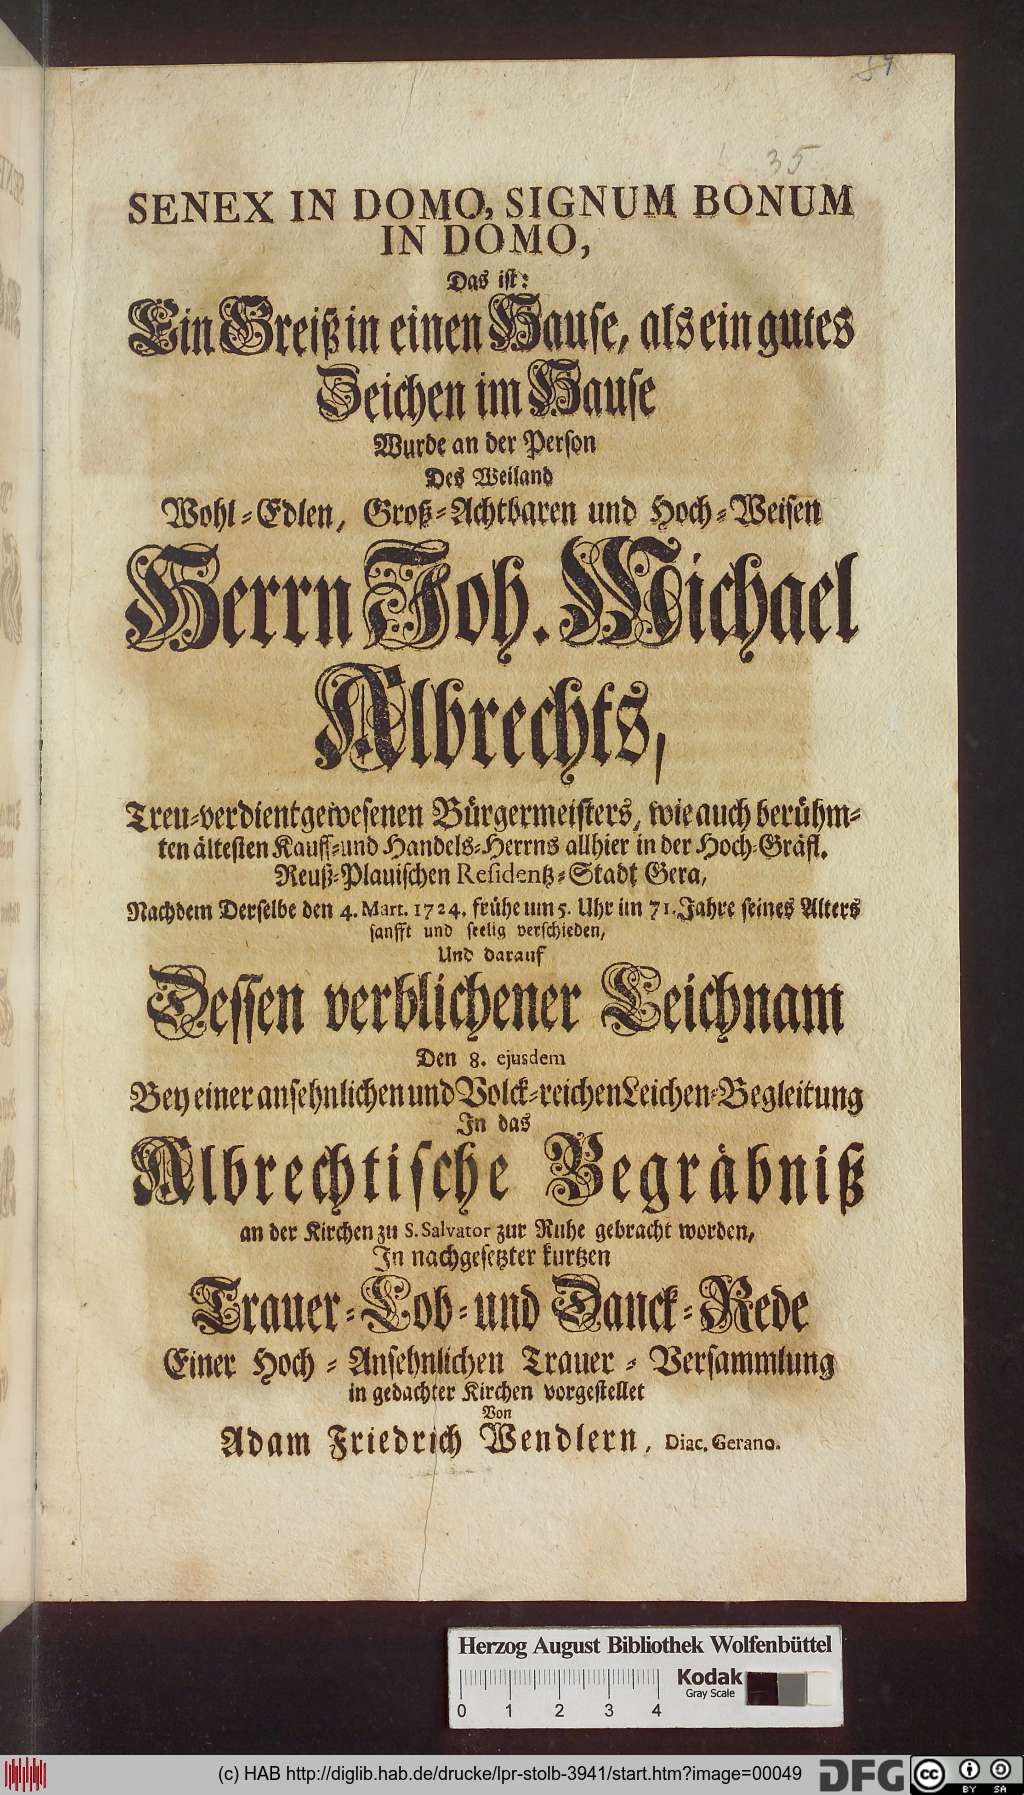 89
35
SENEX IN DOMO, SIGNUM BONUM
IN DOMO,
Das ist:
Ein Greiß in einen Hause, als ein gutes
Zeichen im Hause
Wurde an der Person
Des Weiland
Wohl-Edlen, Groß-Achtbaren und Hoch-Weisen
Herrn Joh. Michael
Albrechts,
Treu-verdientgewesenen Bürgermeisters, wie auch berühm-
ten ältesten Kauff-und Handels-Herrns allhier in der Hoch-Gräfl.
Reuß-Plauischen Residentz-Stadt Gera,
Nachdem Derselbe den 4. Mart. 1724. frühe um 5. Uhr im 71. Jahre seines Alters
sanfft und seelig verschieden,
Und darauf
Dessen verblichener Leichnam
Den 8. ejusdem
Bey einer ansehnlichen und Volck-reichen Leichen-Begleitung
In das
Albrechtische Begräbniß
an der Kirchen zu S. Salvator zur Ruhe gebracht worden,
In nachgesetzter kurtzen
Trauer-Lob-und Danck-Rede
Einer Hoch-Ansehnlichen Trauer-Versammlung
in gedachter Kirchen vorgestellet
Von
Adam Friedrich Wendlern, Diac. Gerano.
Herzog August Bibliothek Wolfenbüttel
Kodak
Gray Scale
0 1 2 3 4
(c) HAB http://diglib.hab.de/drucke/lpr-stolb-3941/start.htm?image=00049
DFG
cc BY SA